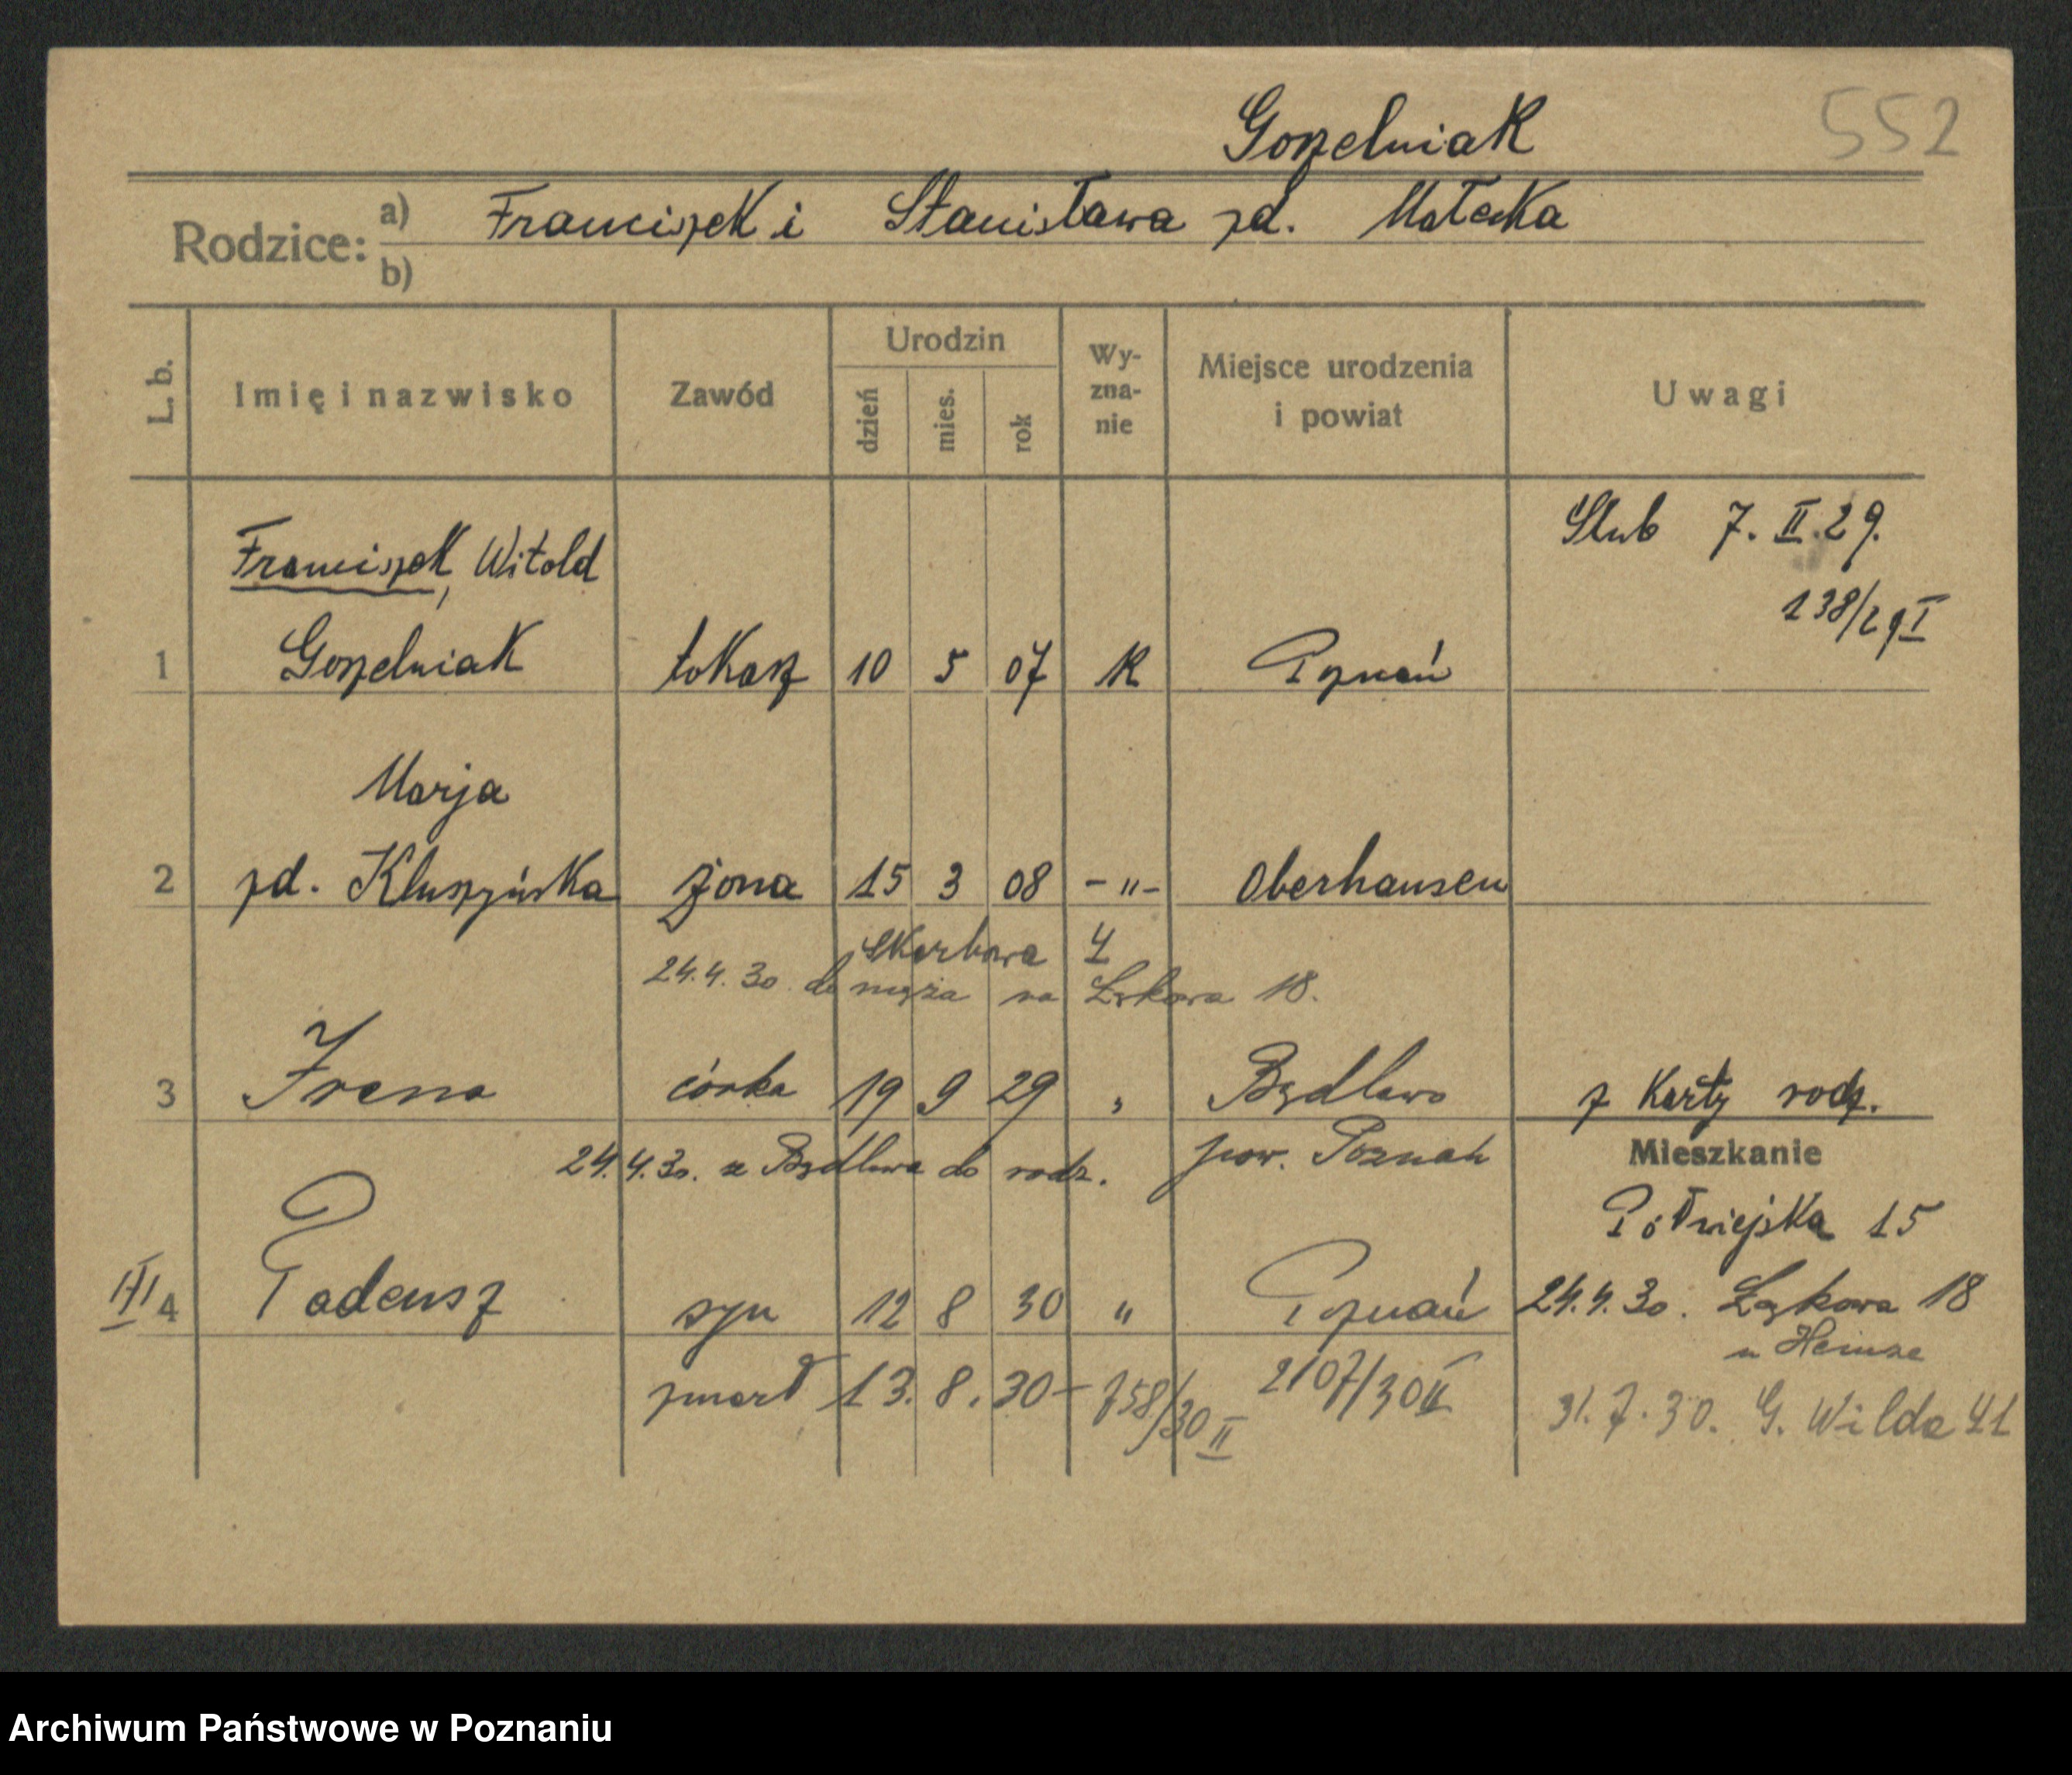 Gozelniak 552
Rodzice: a) Franciszek i Stanisława zd. Małecka
b)
L. b. Imię i nazwisko Zawód Urodzin dzień mies. rok Wyznanie Miejsce urodzenia i powiat Uwagi
Franciszek, Witold Ślub 7. II. 29.
138/29 I
1 Gozelniak tokarz 10 5 07 K Poznań
Marja
2 zd. Kluszyńska żona 15 3 08 -"- Oberhausen
Skarbowa 4
24.4.30. do męża na Łąkowa 18.
3 Irena córka 19 9 29 " Będlewo z Karty rodz.
24.4.30. z Będlewa do rodz. pow. Poznań
Mieszkanie
Półwiejska 15
III 4 Tadeusz syn 12 8 30 " Poznań 24.4.30. Łąkowa 18
u Heinze
zmarł 13. 8. 30 - 758/30 II 2107/30 II
31.7.30. G. Wilda 41
Archiwum Państwowe w Poznaniu